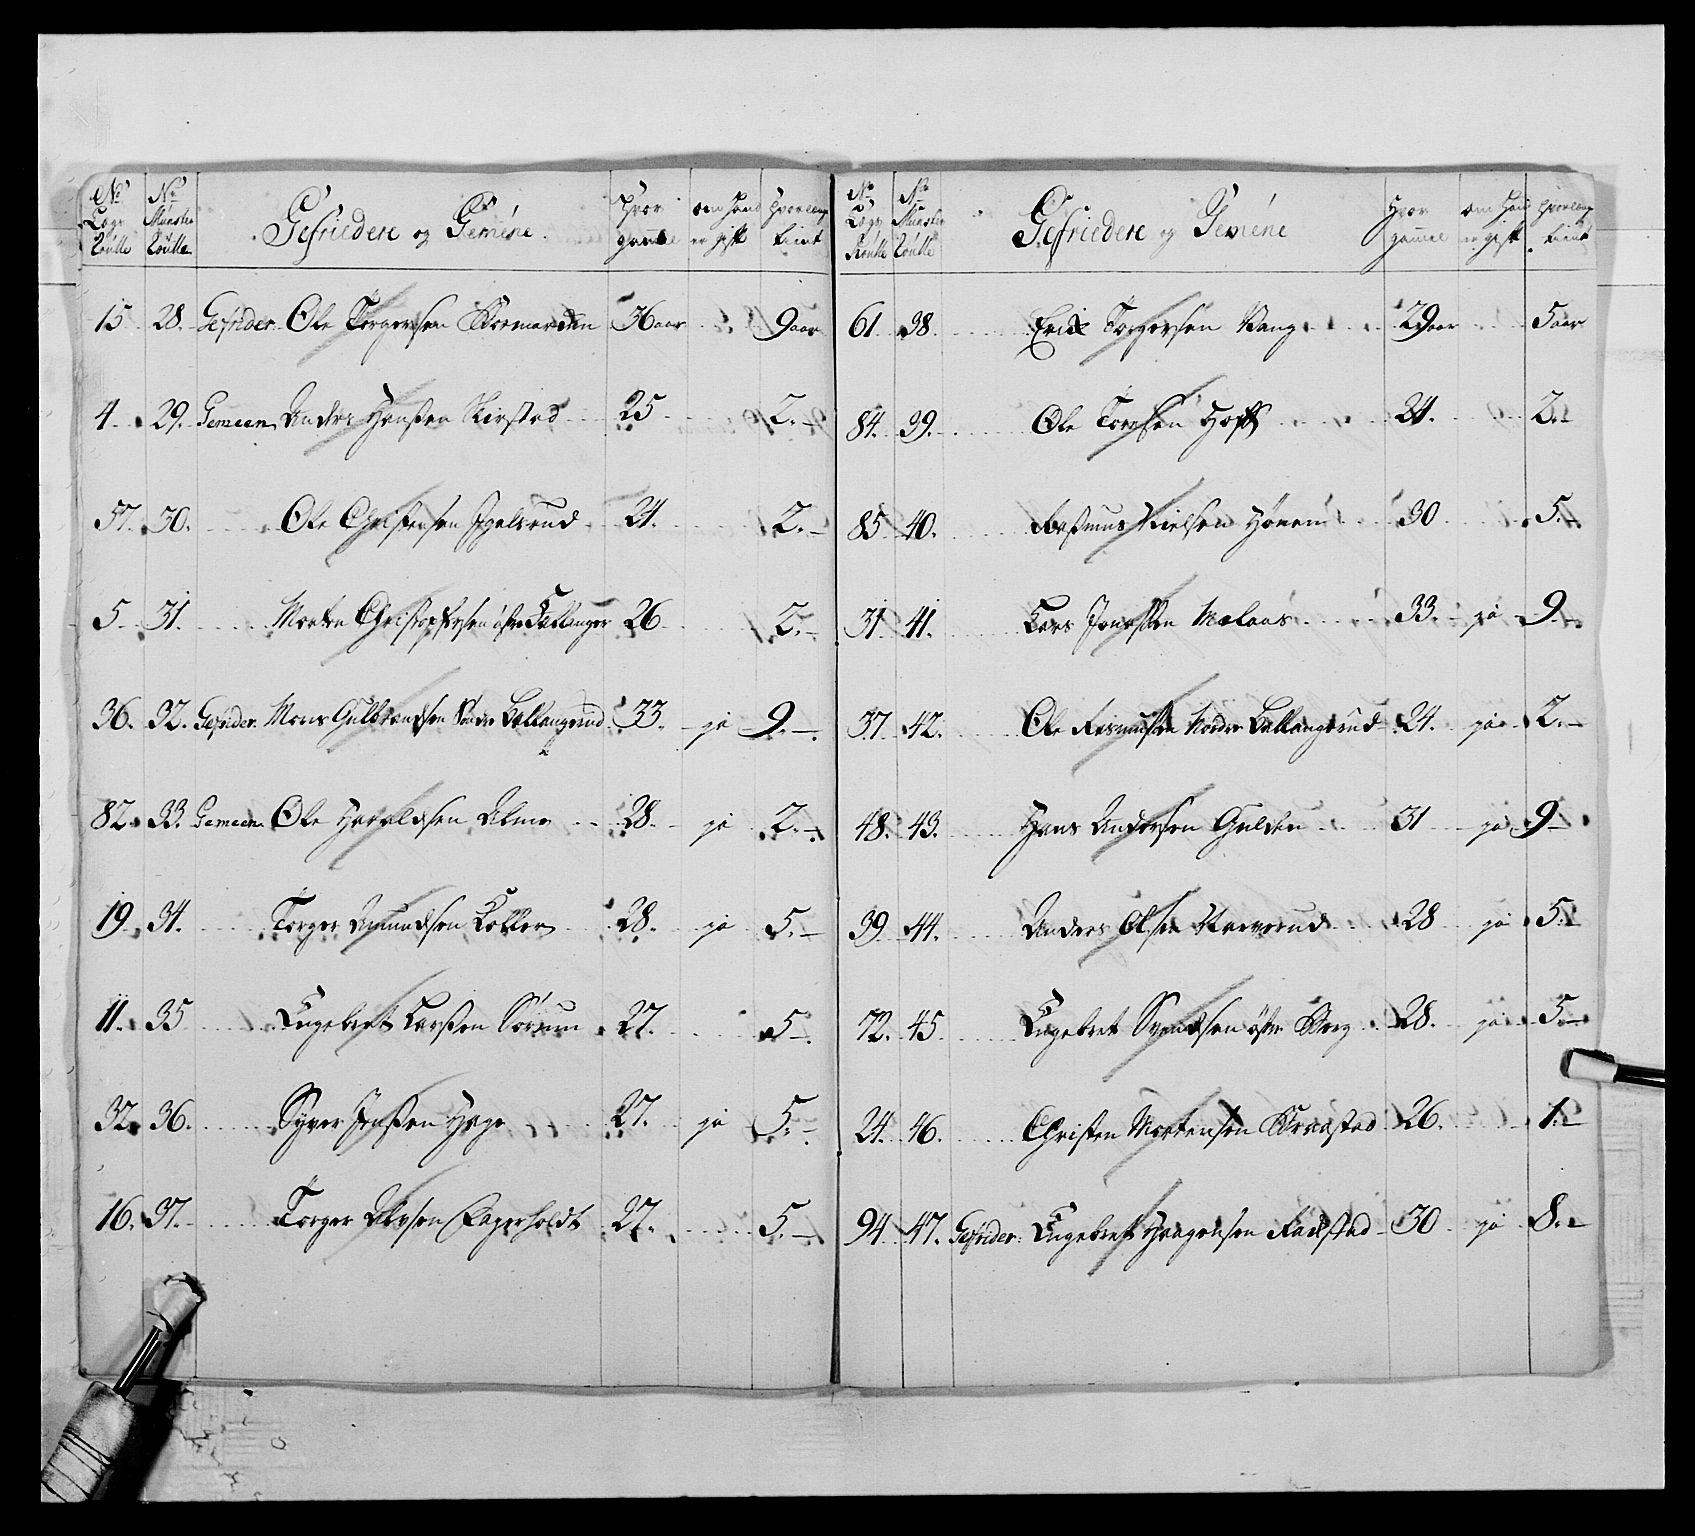 No Lage Roulle | No Munster Roulle | Gefriedere og Gemene | Hvor gammel | om hand er gift | hvor lenge tient
15 28. Gefrider Ole Torgersen 36 aar 9 aar
4 29. Gemeen Anders Hansen Kirstad 25 2.-
57. 30. Ole Christensen Igelsrud 24. 2.-
5 31. Morten Christophersen östre 26 2.-
36. 32. Gefrider. Mons Gulbrandsen Søndre Ballangrud 33. ja 9.-
82. 33. Gemeen Ole Haraldsen Alm 28. ja 2.-
19 34. Torger Amundsen 28. ja 5.-
11. 35 Engebret Larsen Sörum 27. 5-
32. 36. Syver Jensen Hage 27. ja 5.-
16. 37. Torger Fagerholdt 27. 5.-
No Lage Roulle | No Munster Roulle | Gefriedere og Gemene | Hvor gammel | om hand er gift | hvor lenge tient
61 38 Erik Torgersen Vang 29 aar 5 aar
84. 39. Ole Hoff 24. 2.-
85 40. Rasmus Nielsen Hönen 30 5.-
31 41. Lars 33. ja 9.-
37. 42. Ole Rasmusen Nordre Ballangrud 24. ja 2.-
48. 43. Hans Andersen Gulden 31 ja 9-
39. 44. Anders Olsen 28 ja 5.-
72. 45 Engebret Svendsen östre Berg 28. ja 5.-
24. 46. Christen Mortensen 26. 1.-
94 47. Gefrider. Engebret Haagensen 30 ja 8.-